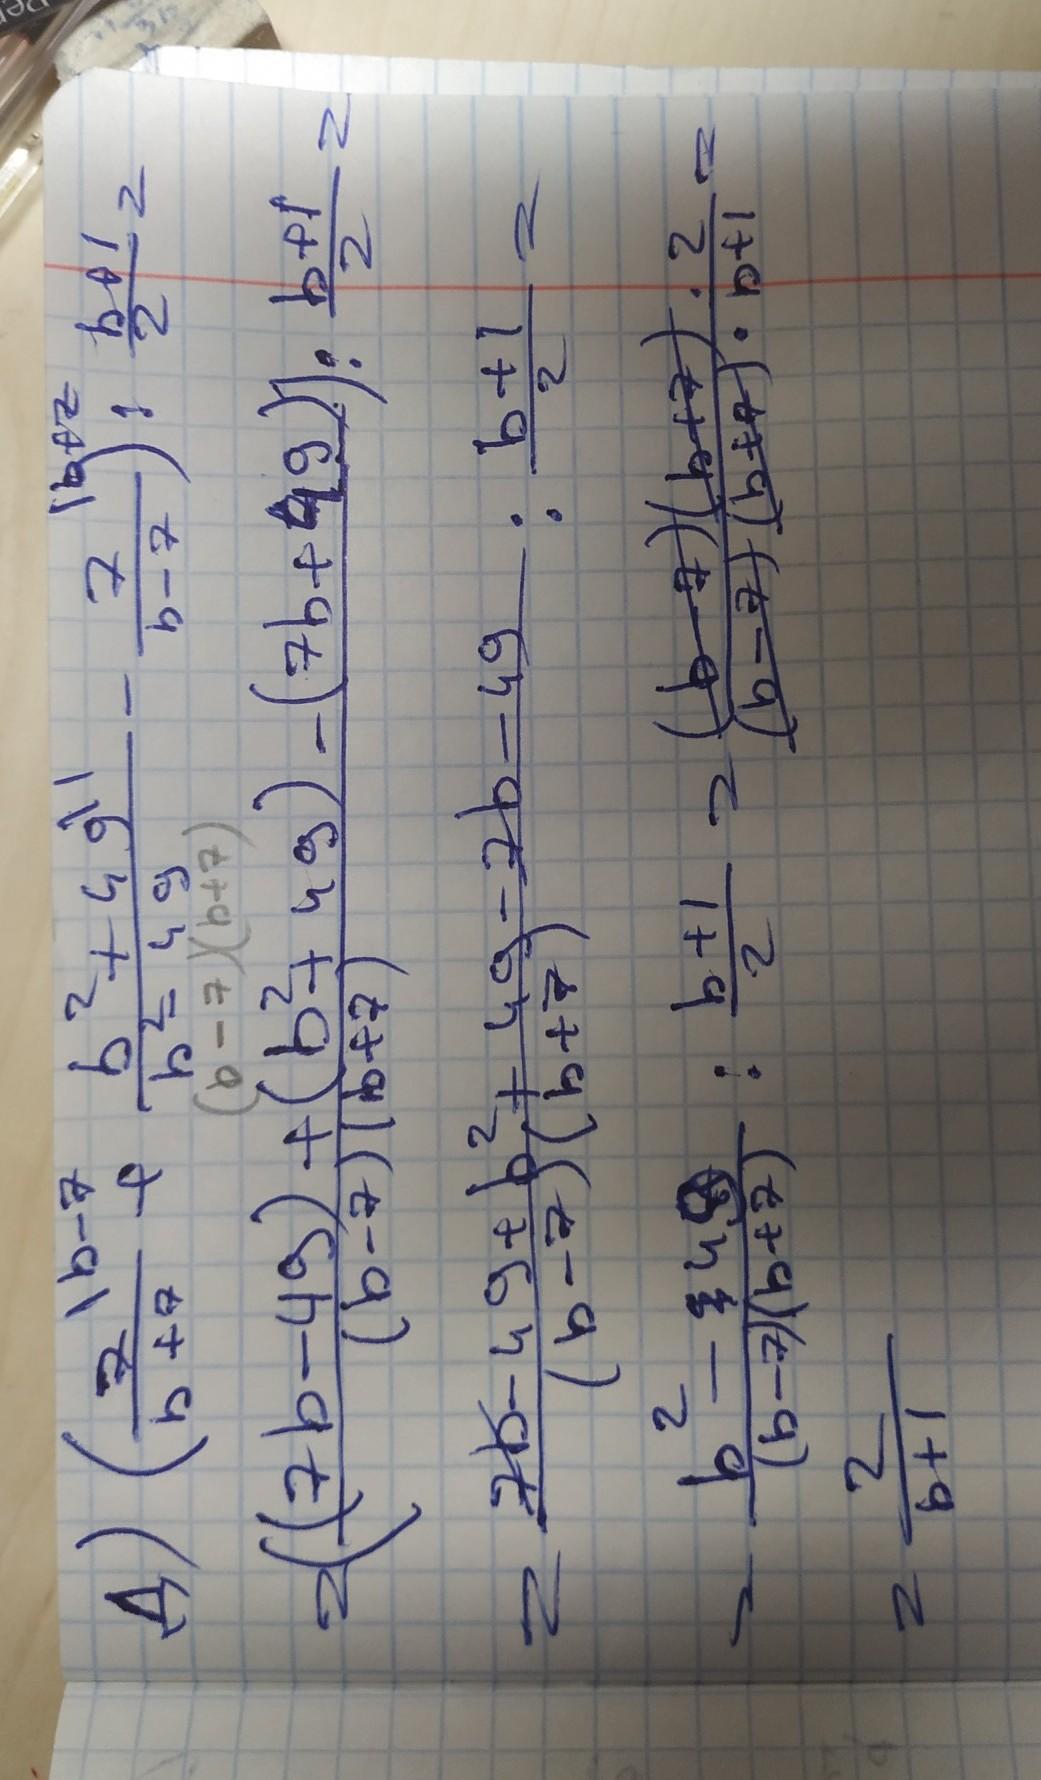 Д) (7/(b+7) \b-7 + (b²+49)/(b²-49) \1 - 7/(b-7) \b+7) : (b+1)/2 =
(b-7)(b+7)
= (((7b-49)+(b²+49)-(7b+49))/((b-7)(b+7))) : (b+1)/2 =
= (7b-49+b²+49-7b-49)/((b-7)(b+7)) : (b+1)/2 =
= (b²-49)/((b-7)(b+7)) : (b+1)/2 = ((b-7)(b+7)·2)/((b-7)(b+7)·b+1) =
= 2/(b+1)